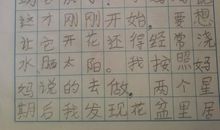 这才刚刚开始。要想
让它开花还得经常浇
水、晒太阳。我按照妈
妈说的去做。两个星
期后我发现花盆里居